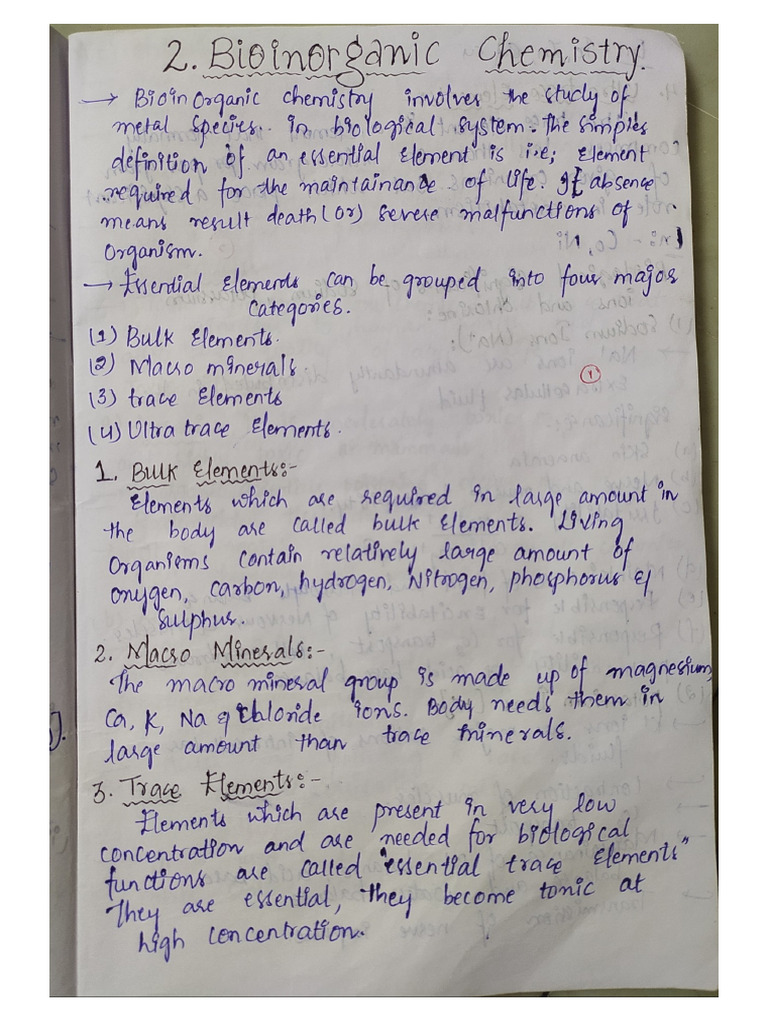 2. Bioinorganic Chemistry.
→ Bioinorganic chemistry involves the study of
metal species.. in biological system. The simples
definition of an essential Element is i.e; Element
required for the maintainance of life. If absence
means result death (or) severe malfunctions of
organism.
→ Essential Elements can be grouped into four major
categories.
(1) Bulk Elements.
(2) Macro minerals.
(3) trace Elements
(4) Ultra trace Elements.
1. Bulk Elements:-
Elements which are required in large amount in
the body are called bulk Elements. Living
Organisms contain relatively large amount of
oxygen, carbon, hydrogen, Nitrogen, phosphorus &
sulphur.
2. Macro Minerals:-
The macro mineral group is made up of magnesium,
Ca, K, Na & chloride ions. Body needs them in
large amount than trace minerals.
3. Trace Elements:-
Elements which are present in very low
concentration and are needed for biological
functions are called "essential trace Elements"
They are essential, they become toxic at
high concentration.